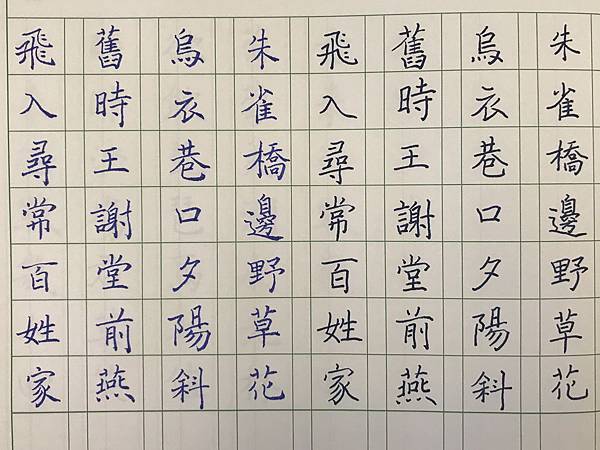 朱雀橋邊野草花
烏衣巷口夕陽斜
舊時王謝堂前燕
飛入尋常百姓家
朱雀橋邊野草花
烏衣巷口夕陽斜
舊時王謝堂前燕
飛入尋常百姓家